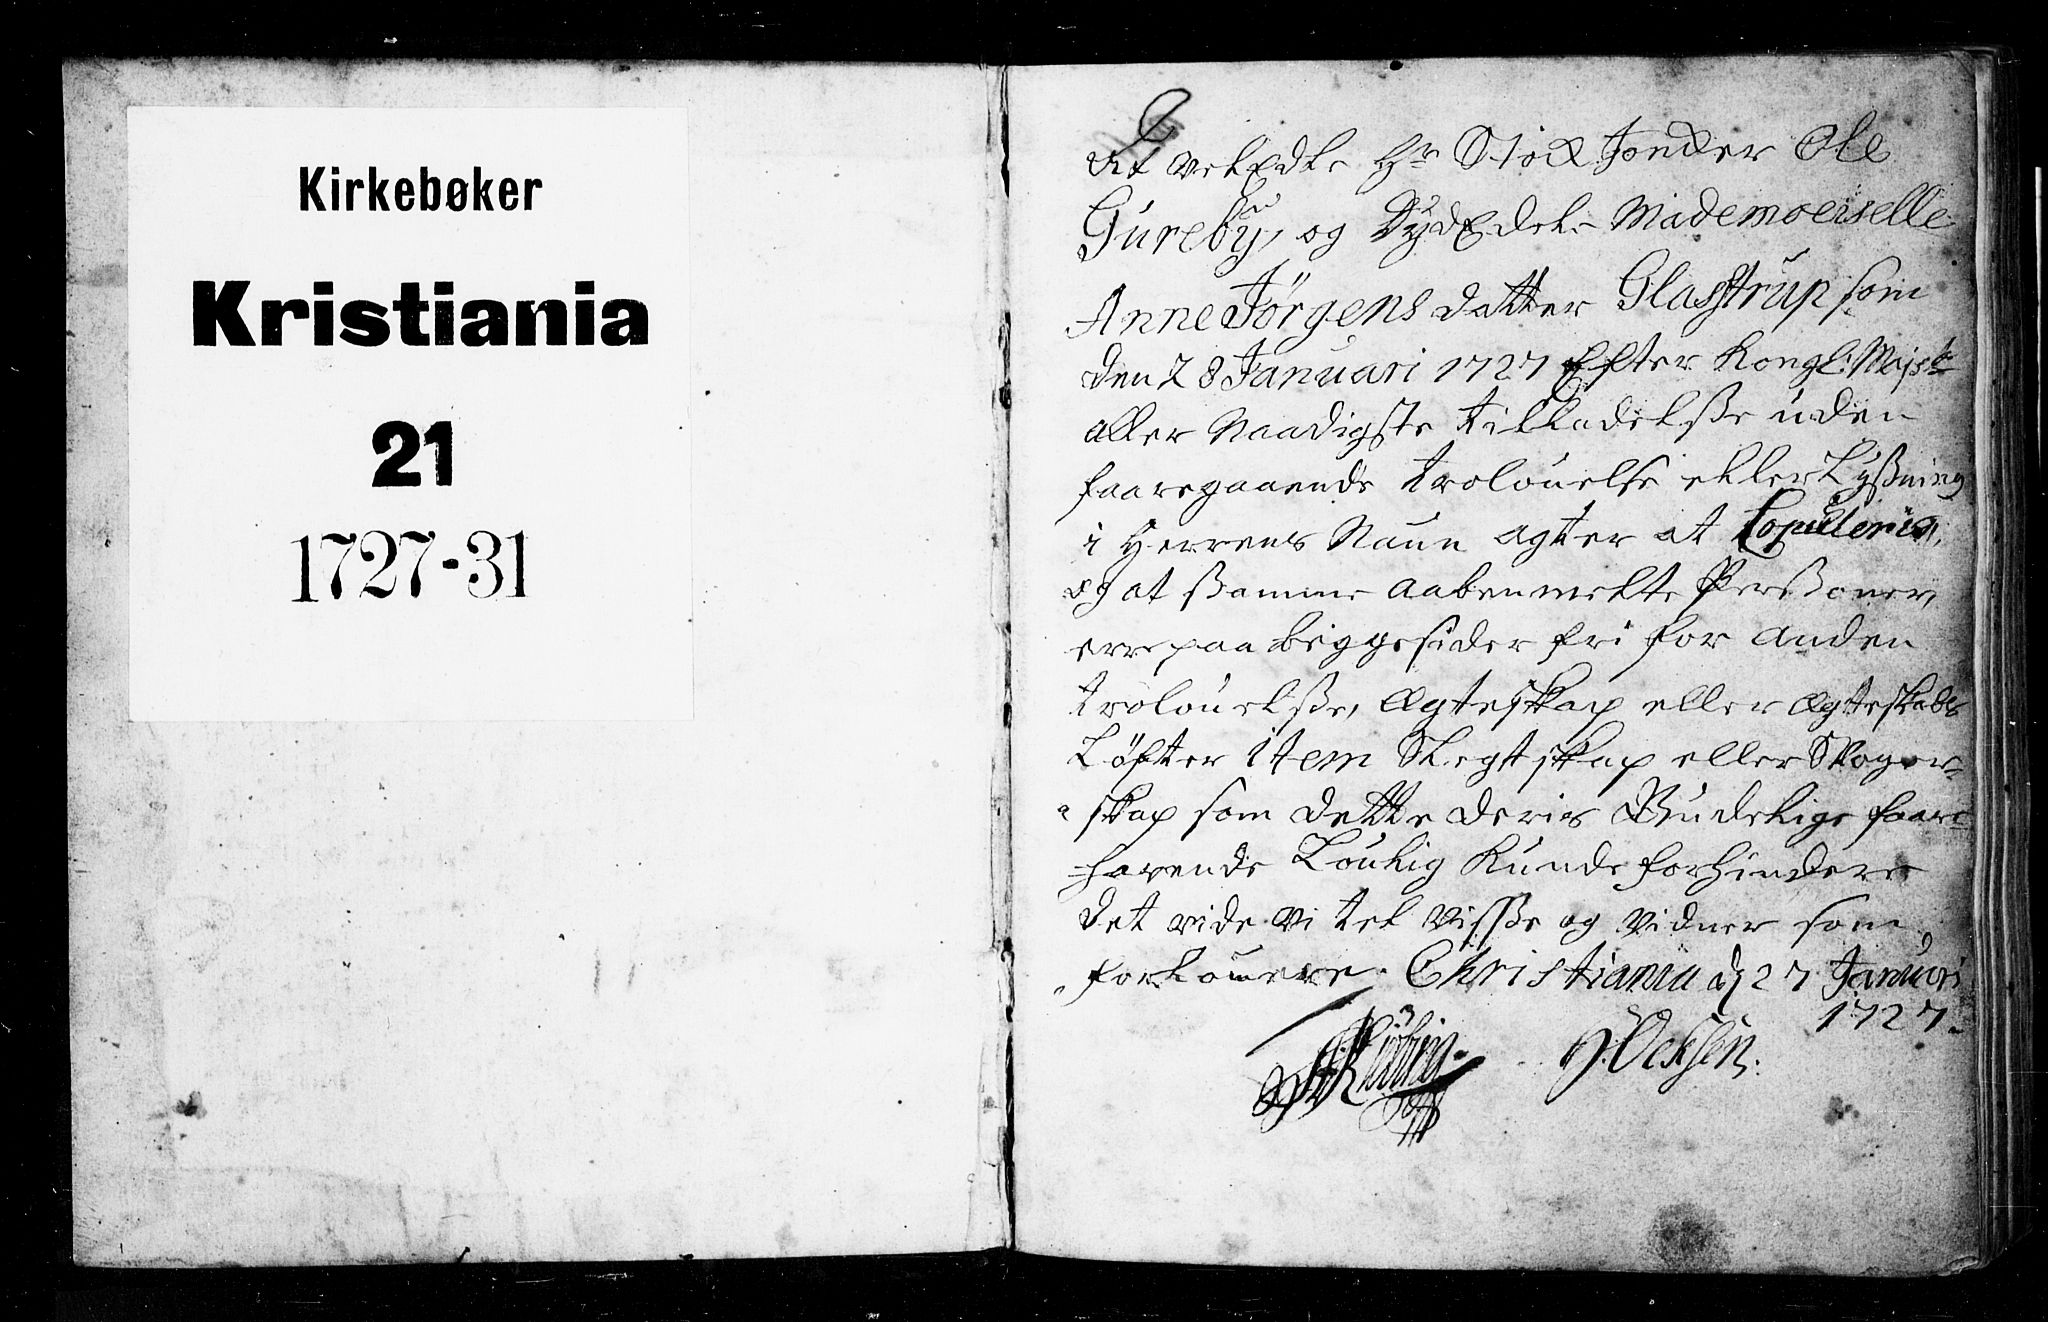 Kirkebøker
Kristiania
21
1727-31
At velEdle Hr Stöck Joncker Ole
Gureby, og DydEdele Mademoeiselle
Anne Jörgens datter Glastrup som
den 28 Januari 1727 Efter Kongl: Mayst
aller Naadigste tilladelsße uden
faaregaaende trolouelse eller Lysßning
i Herrens Naun agter at Copuleris,
og at sßamme aabenmelte Persßoner,
erre paa begge sider fri for anden
trolouelsße, Ægteskap eller Ægteskabs
Löfter item Slegtskap eller Svoger-
skap som dette deris Gudelige faare-
havende Loulig kunde forhindere
det vide vi tel visße og vidner som
forlouere. Christiania d 27 Januari
1727.